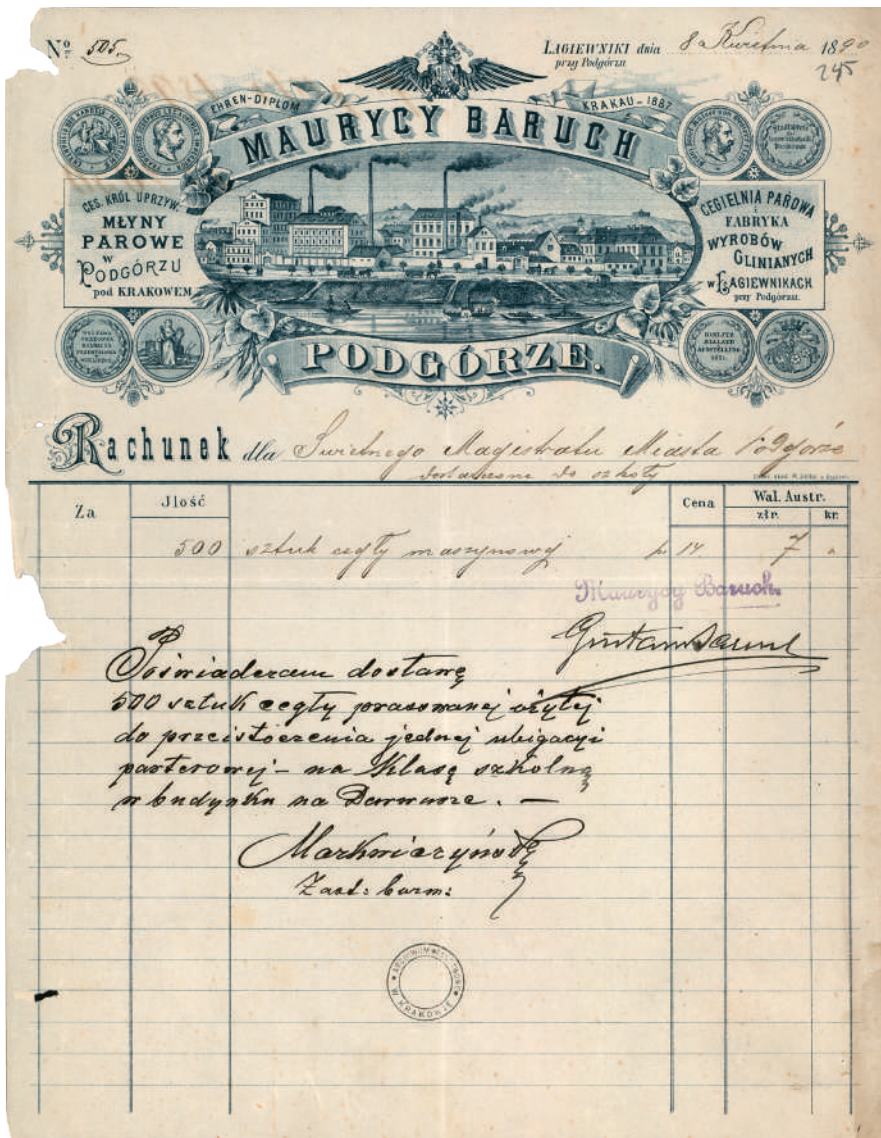 № 505.
ŁAGIEWNIKI dnia 8 Kwietnia 1890
przy Podgórzu
245
EHREN-DIPLOM
KRAKAU-1887
MAURYCY BARUCH
CES. KRÓL UPRZYW.
MŁYNY
PAROWE
W
PODGÓRZU
pod KRAKOWEM
CEGIELNIA PAROWA
i
FABRYKA
WYROBÓW
GLINIANYCH
w ŁAGIEWNIKACH
przy Podgórzu.
PODGÓRZE.
Rachunek dla Swietnego Magistratu Miasta Podgórza
dostarczone do szkoły
Za
Jlość
Cena
Wal. Austr.
złr.
kr.
500 sztuk cegły maszynowej p 14. 7
Maurycy Baruch.
Gustaw Baruch
Poświadczam dostawę
500 sztuk cegły prasowanej użytej
do przeistoczenia jednej ubigacyi
parterowej – na klasę szkolną
w budynku na
Zast: burm:
ARCHIWUM PAŃSTWOWE
W KRAKOWIE